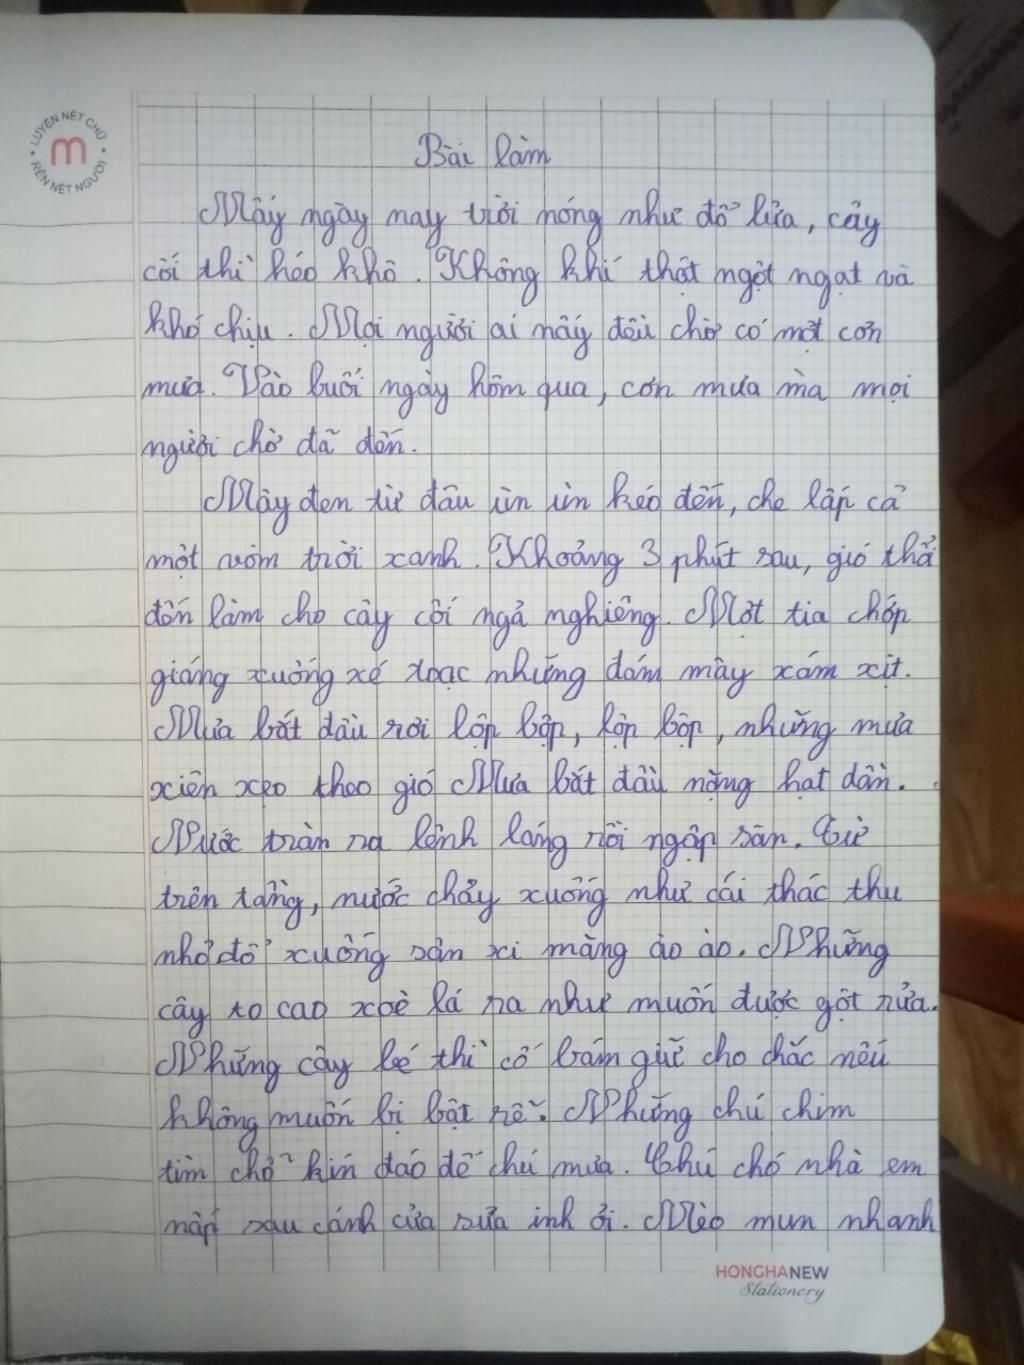 LUYỆN NÉT CHỮ
m
RÈN NẾT NGƯỜI
Bài làm
Mấy ngày nay trời nóng như đổ lửa, cây
cối thì héo khô. Không khí thật ngột ngạt và
khó chịu. Mọi người ai nấy đều chờ có một cơn
mưa. Vào buổi ngày hôm qua, cơn mưa mà mọi
người chờ đã đến.
Mây đen từ đâu ùn ùn kéo đến, che lấp cả
một vòm trời xanh. Khoảng 3 phút sau, gió thổi
đến làm cho cây cối ngả nghiêng. Một tia chớp
giáng xuống xé toạc những đám mây xám xịt.
Mưa bắt đầu rơi lộp bộp, lộp bộp, những mưa
xiên xẹo theo gió Mưa bắt đầu nặng hạt dần.
Nước tràn ra lênh láng rồi ngập sân. Từ
trên tầng, nước chảy xuống như cái thác thu
nhỏ đổ xuống sân xi măng ào ào. Những
cây to cao xoè lá ra như muốn được gột rửa.
Những cây bé thì cố bám giữ cho chắc nếu
không muốn bị bật rễ. Những chú chim
tìm chỗ kín đáo để chú mưa. Chú chó nhà em
nấp sau cánh cửa sủa inh ỏi. Mèo mun nhanh
HONGHANEW
Stationery